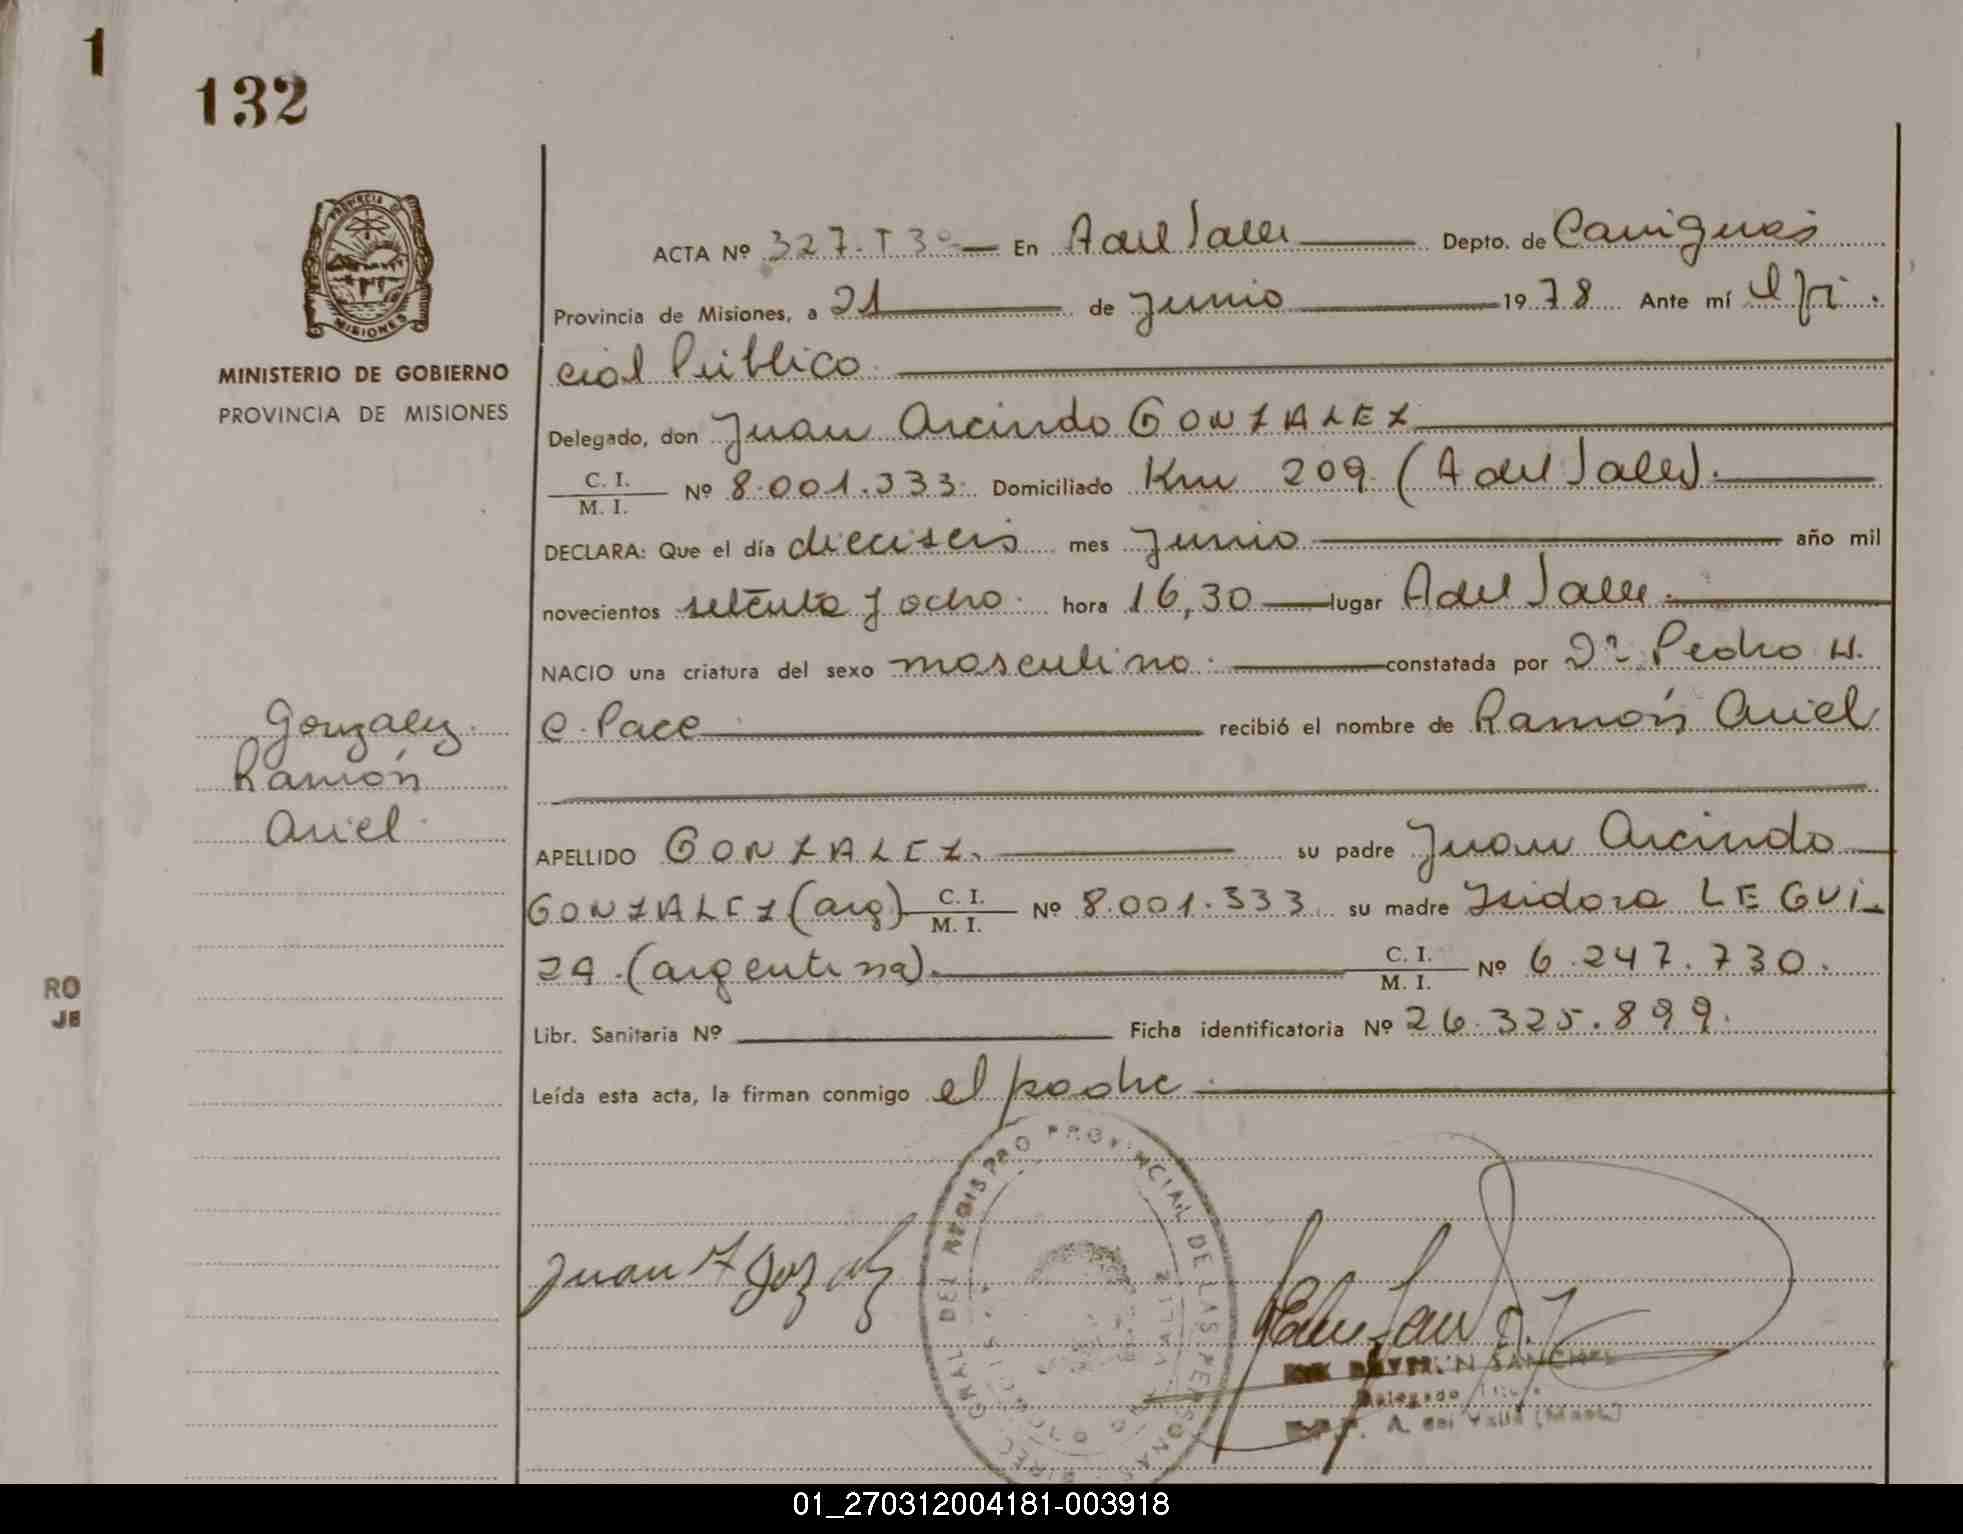 1
132
PROVINCIA D
MISIONES
MINISTERIO DE GOBIERNO
PROVINCIA DE MISIONES
ACTA Nº 327. T 3º En A del Valle Depto. de Cainguás
Provincia de Misiones, a 21 de Junio 1978 Ante mí Ofi
cial Público
Delegado, don Juan Arcindo GONZALEZ
C. I.
M. I. Nº 8.001.333. Domiciliado Km 209. (A del Valle).
DECLARA: Que el día dieciseis mes Junio año mil
novecientos setenta y ocho. hora 16,30 lugar A del Valle.
NACIO una criatura del sexo masculino. constatada por Dr. Pedro H.
C. Pace recibió el nombre de Ramón Ariel
Gonzalez.
Ramón
Ariel.
APELLIDO GONZALEZ. su padre Juan Arcindo
GONZALEZ (arg) C. I.
M. I. Nº 8.001.333 su madre Isidora LEGUI-
ZA. (argentina). C. I.
M. I. Nº 6.247.730.
RO
JE
Libr. Sanitaria Nº Ficha identificatoria Nº 26.325.899.
Leída esta acta, la firman conmigo el padre.
DIREC. GRAL DEL REGISTRO PROVINCIAL DE LAS PERSONAS
Juan A Gozalz
SANCHEZ
Delegado
A. del Valle (Mnes.)
01_270312004181-003918